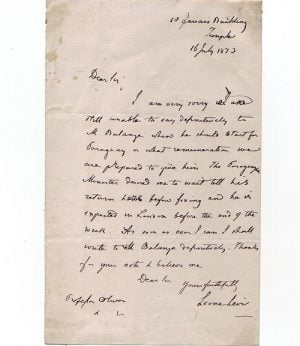 10 Farrars Building
Temple
16 July 1873
Dear Sir,
I am very sorry I am
still unable to say definitively to
M Balanza when he should start for
Paraguay or what remuneration we
are prepared to give him. The Paraguay
Minister desired me to wait till his
return before fixing and he is
expected in London before the end of the
week. As soon as ever I can I shall
write to M Balanza definitively. Thanks
for your note & believe me
Dear Sir Yours faithfully
Leone Levi
Professor Oliver